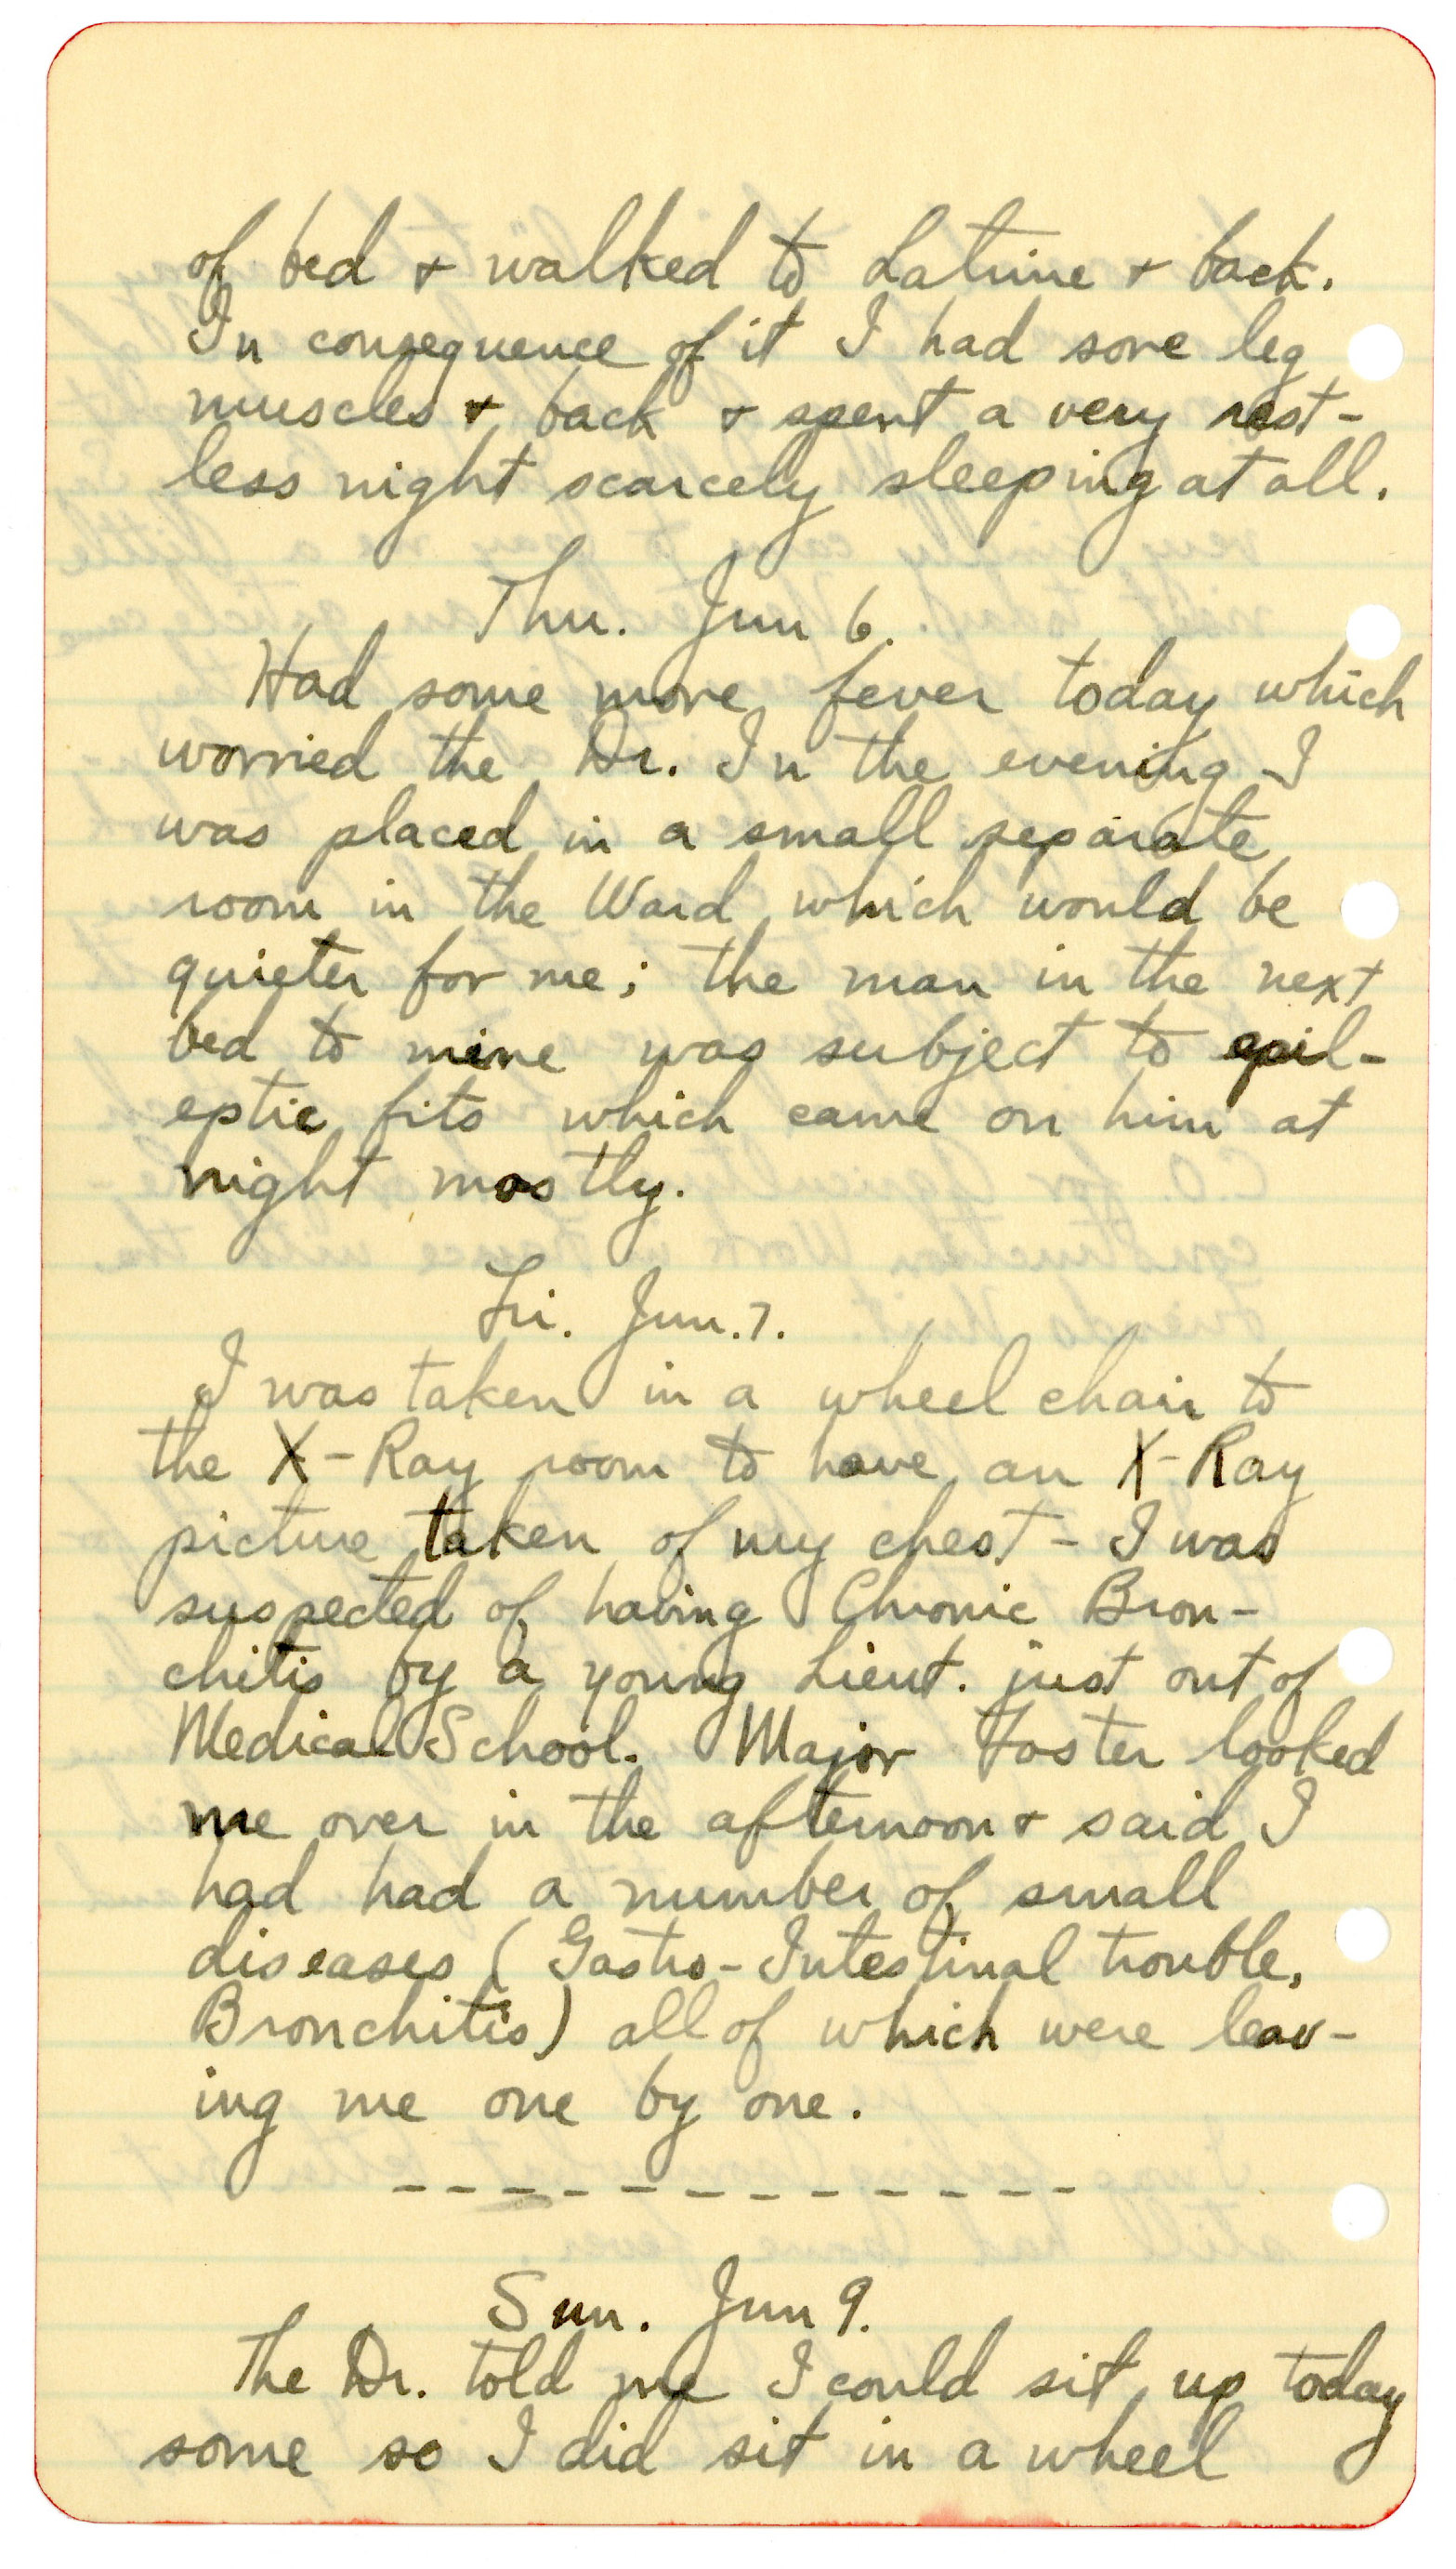 of bed & walked to Latrine & back.
In consequence of it I had sore leg
muscles & back & spent a very rest-
less night scarcely sleeping at all.
Thu. Jun 6.
Had some more fever today which
worried the Dr. In the evening I
was placed in a small separate
room in the Ward which would be
quieter for me; the man in the next
bed to mine was subject to epil-
eptic fits which came on him at
night mostly.
Fri. Jun. 7.
I was taken in a wheel chair to
the X-Ray room to have an X-Ray
picture taken of my chest - I was
suspected of having Chronic Bron-
chitis by a young Lieut. just out of
Medical School. Major Foster looked
me over in the afternoon & said I
had had a number of small
diseases (Gastro-Intestinal trouble,
Bronchitis) all of which were leav-
ing me one by one.
- - - - - - - - - - - - -
Sun. Jun 9.
The Dr. told me I could sit up today
some so I did sit in a wheel